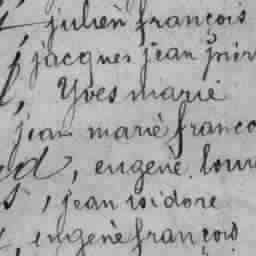 , julien françois
, jacques jean
, Yves marie
jean marie franco
, eugene
, jean isidore
, eugène françois